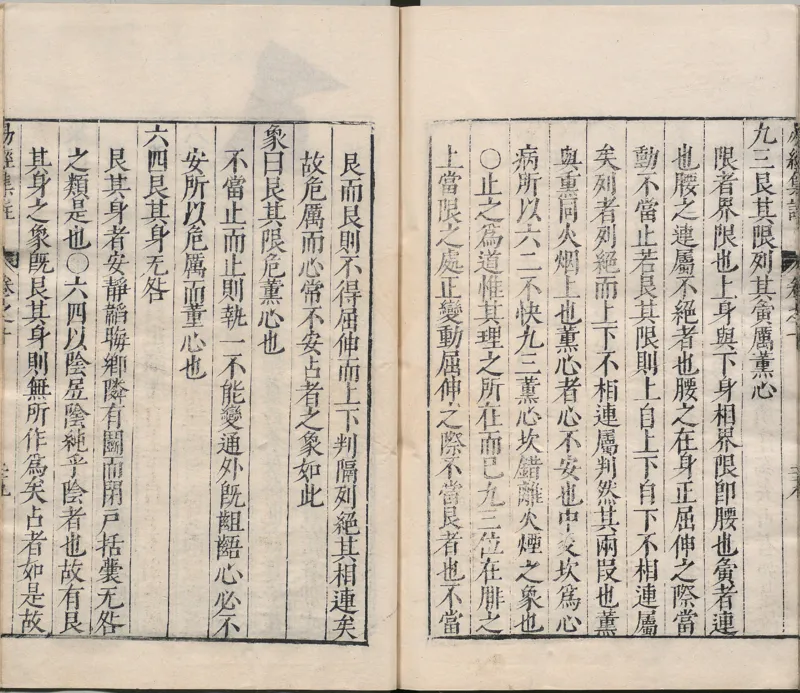 九三艮其限列其夤厲薰心
限者界限也上身與下身相界限卽腰也夤者連
也腰之連屬不絕者也腰之在身正屈伸之際當
動不當止若艮其限則上自上下自下不相連屬
矣列者列絕而上下不相連屬判然其兩叚也薰
與熏同火烟上也薰心者心不安也中爻坎為心
病所以六二不快九三薰心坎錯離火煙之象也
○止之為道惟其理之所在而已九三位在腓之
上當限之處正變動屈伸之際不當艮者也不當
艮而艮則不得屈伸而上下判隔列絕其相連矣
故危厲而心常不安占者之象如此
象曰艮其限危薰心也
不當止而止則執一不能變通外旣齟齬心必不
安所以危厲而薰心也
六四艮其身无咎
艮其身者安靜韜晦鄉隣有鬭而閉戶括囊无咎
之類是也○六四以陰居陰純乎陰者也故有艮
其身之象旣艮其身則無所作為矣占者如是故
易經集註 卷之十